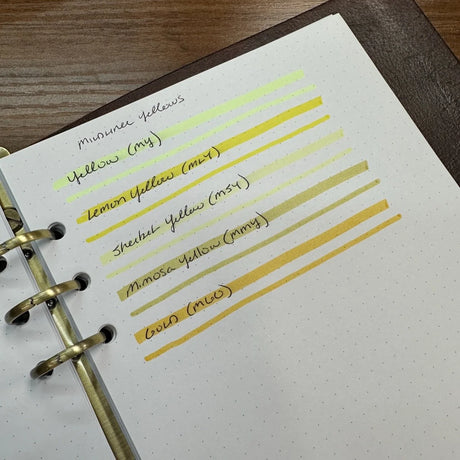 Mildliner Yellows
Yellow (MY)
Lemon Yellow (MLY)
Sherbet Yellow (MSY)
Mimosa Yellow (MMY)
Gold (MGO)